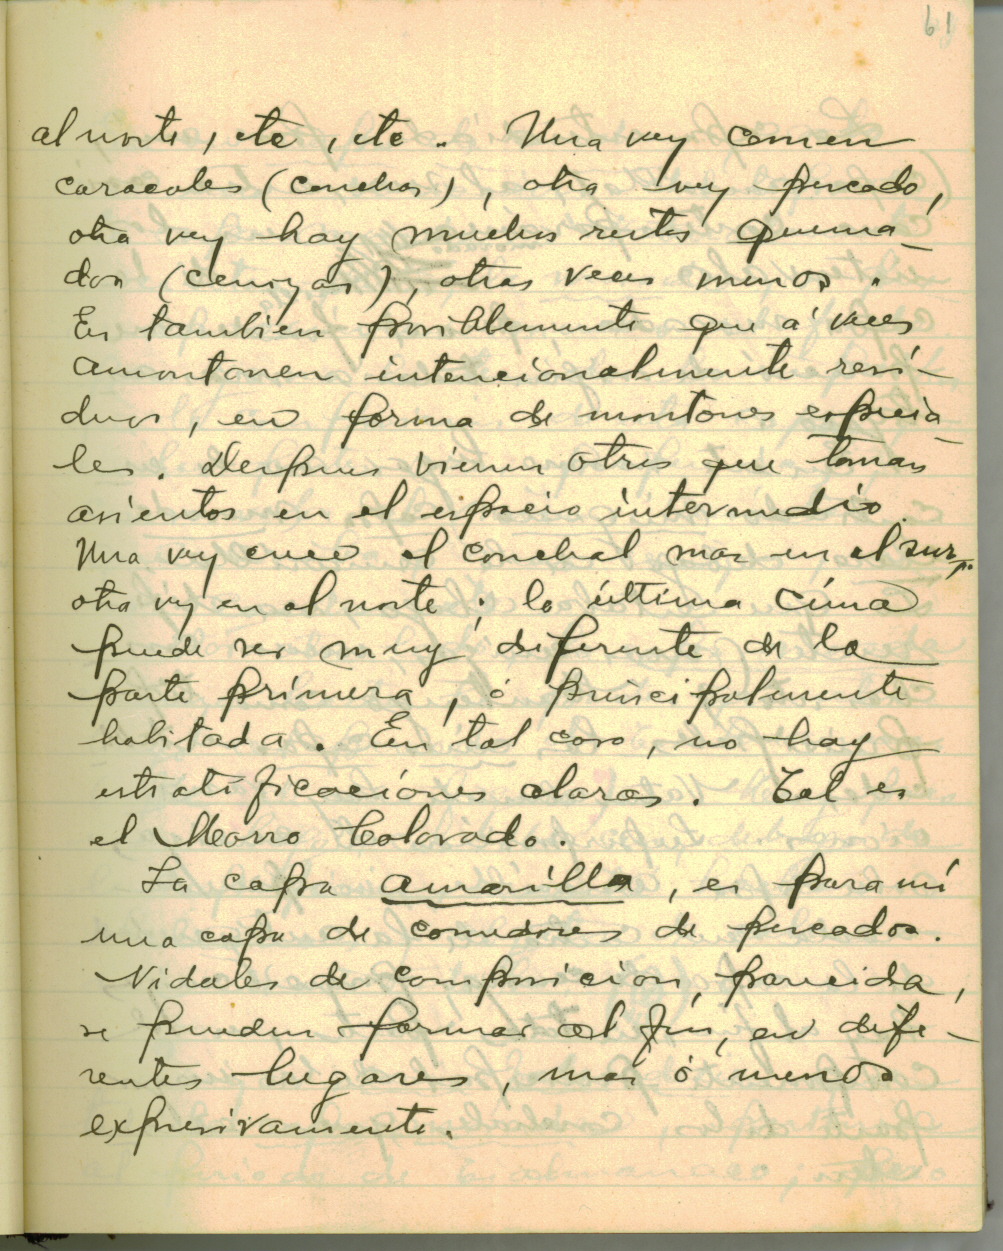 61
al norte, etc, etc. Una vez comen
caracoles (conchas), otra vez pescado,
otra vez hay muchos restos quema-
dos (cenizas), otras veces menos.
Es tambien posiblemente que á veces
amontonen intencionalmente resí-
duos, en forma de montones especia-
les. Despues vienen otros que toman
asientos en el espacio intermedio.
Una vez crece el conchal mas en el sur,
otra vez en el norte; la última cima
puede ser muy diferente de la
parte primera, ó principalmente
habitada. En tal caso, no hay
estratificaciones claras. Tal es
el Morro Colorado.
La capa amarilla, es para mí
una capa de comedores de pescados.
Nidales de composicion, parecida,
se pueden formar al fin, en dife-
rentes lugares, mas ó menos
expresivamente.